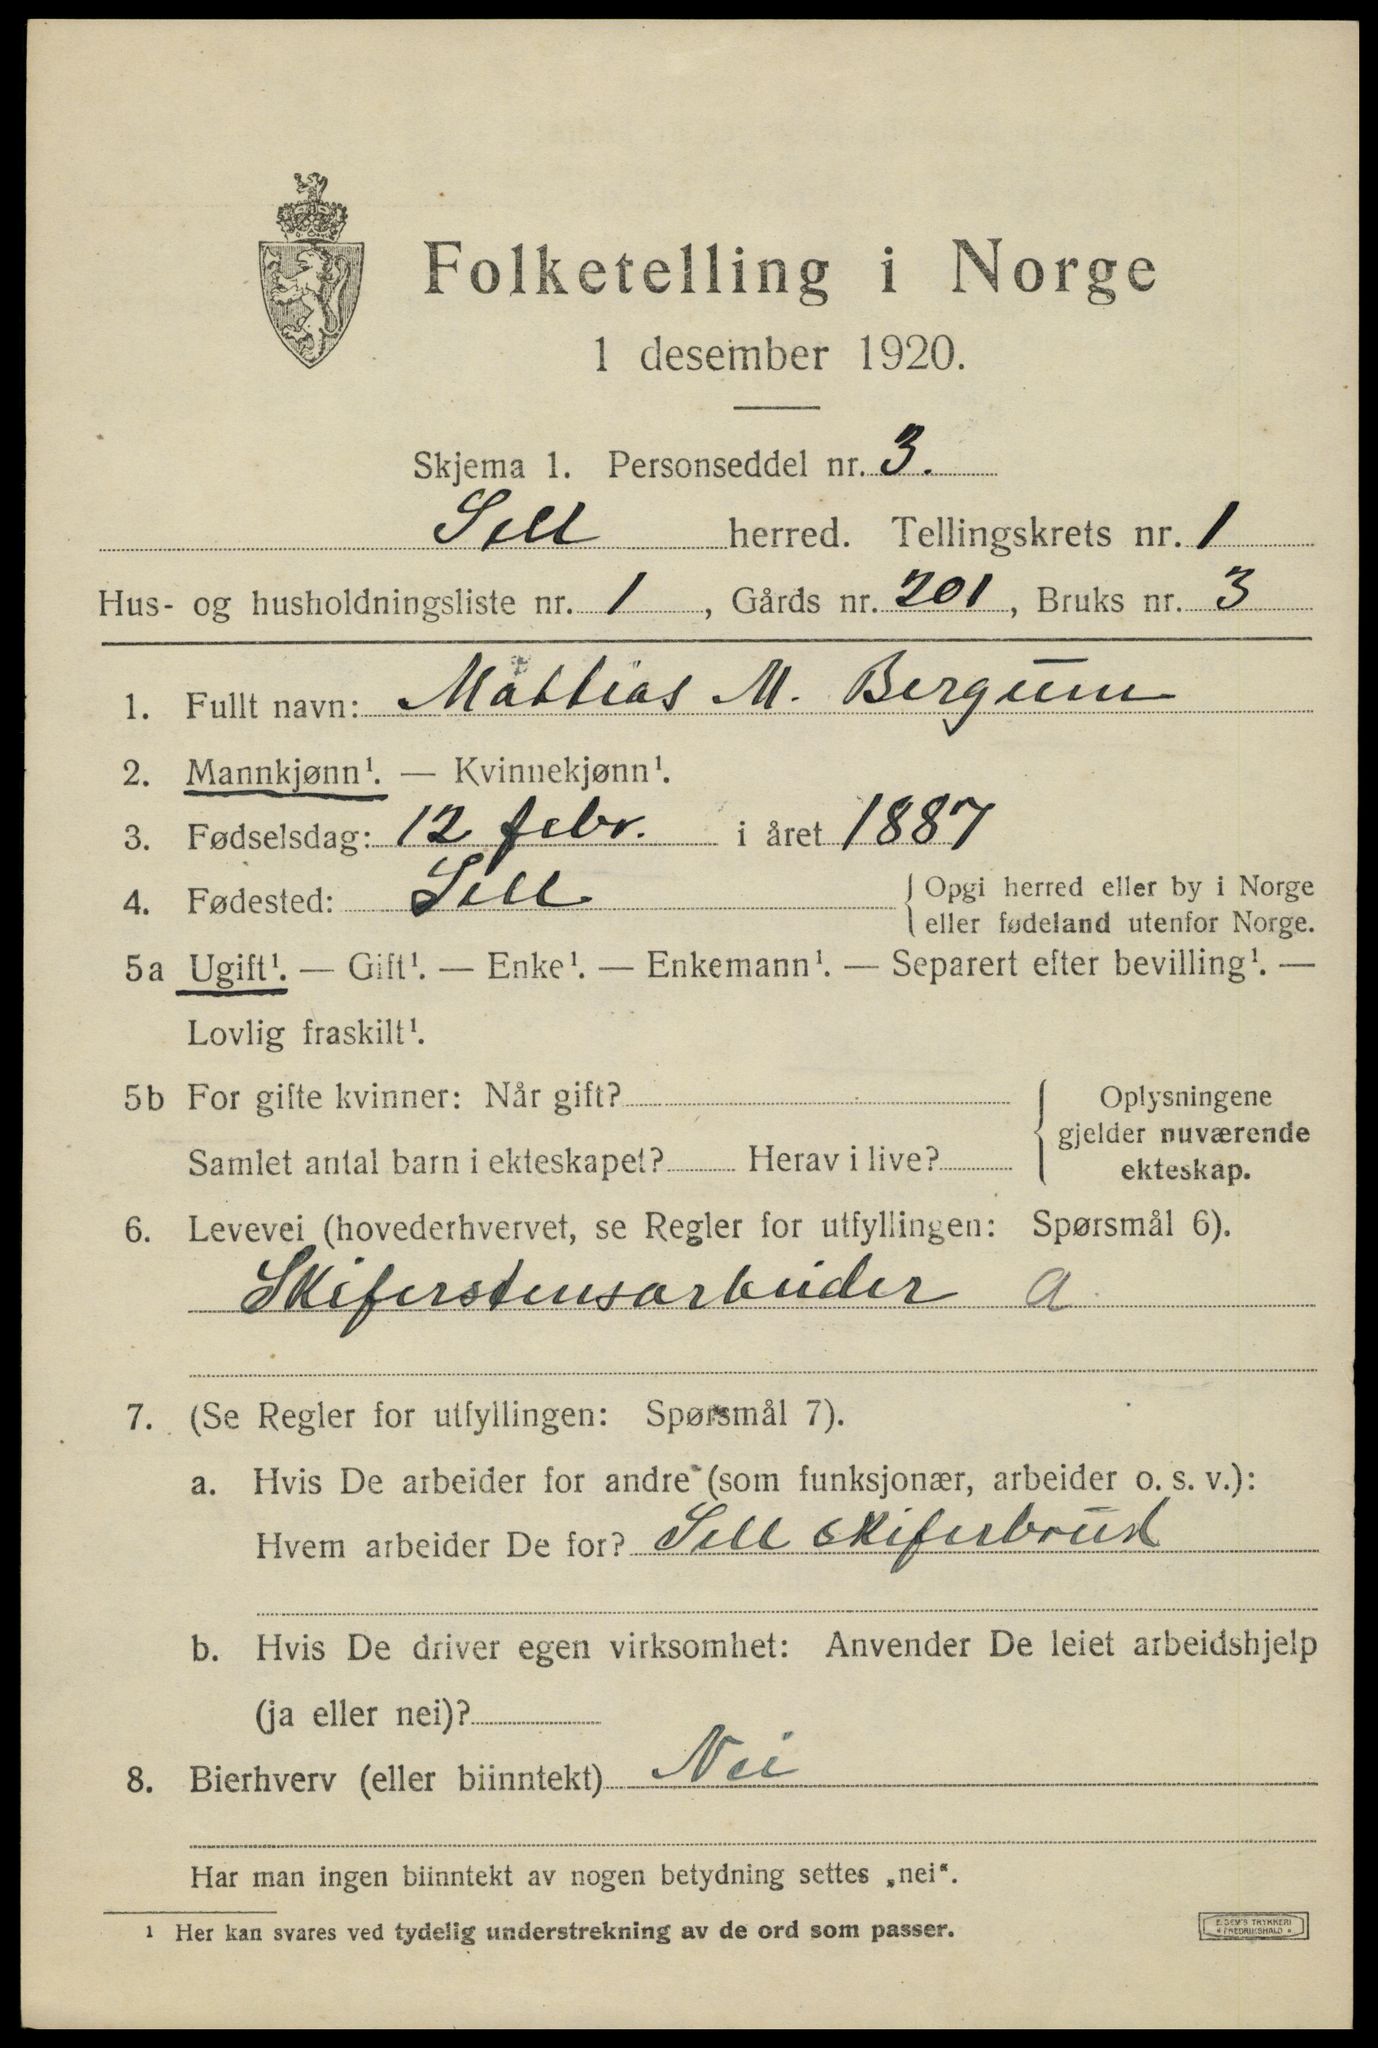 Folketelling i Norge
1 desember 1920.
Skjema 1. Personseddel nr. 3.
Sell herred. Tellingskrets nr. 1
Hus- og husholdningsliste nr. 1, Gårds nr. 201, Bruks nr. 3
1. Fullt navn: Mattias M. Bergum
2. Mannkjønn¹. — Kvinnekjønn¹.
3. Fødselsdag: 12 febr. i året 1887
4. Fødested: Sell { Opgi herred eller by i Norge
eller fødeland utenfor Norge.
5a Ugift¹. — Gift¹. — Enke¹. — Enkemann¹. — Separert efter bevilling¹. —
Lovlig fraskilt¹.
5b For gifte kvinner: Når gift? { Oplysningene
gjelder nuværende
Samlet antal barn i ekteskapet? Herav i live? ekteskap.
6. Levevei (hovederhvervet, se Regler for utfyllingen: Spørsmål 6).
Skiferstensarbeider a
7. (Se Regler for utfyllingen: Spørsmål 7).
a. Hvis De arbeider for andre (som funksjonær, arbeider o. s. v.):
Hvem arbeider De for? Sell skiferbrud
b. Hvis De driver egen virksomhet: Anvender De leiet arbeidshjelp
(ja eller nei)?
8. Bierhverv (eller biinntekt) Nei
Har man ingen biinntekt av nogen betydning settes „nei“.
¹ Her kan svares ved tydelig understrekning av de ord som passer.
E. SEM'S TRYKKERI
FREDRIKSHALD